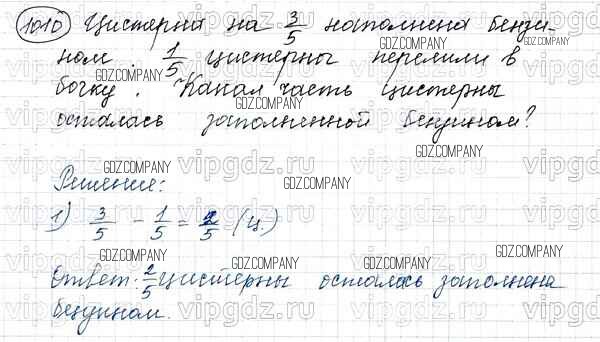 1010 Цистерна на 3/5 наполнена бензи-
ном. 1/5 цистерны перелили в
бочку. Какая часть цистерны
осталась заполненной бензином?
Решение:
1) 3/5 - 1/5 = 2/5 (ц.)
Ответ: 2/5 цистерны осталась заполнена
бензином.
GDZ.COMPANY
GDZ.COMPANY
GDZ.COMPANY
GDZ.COMPANY
GDZ.COMPANY
GDZ.COMPANY
GDZ.COMPANY
GDZ.COMPANY
GDZ.COMPANY
GDZ.COMPANY
GDZ.COMPANY
vipgdz.ru
vipgdz.ru
vipgdz.ru